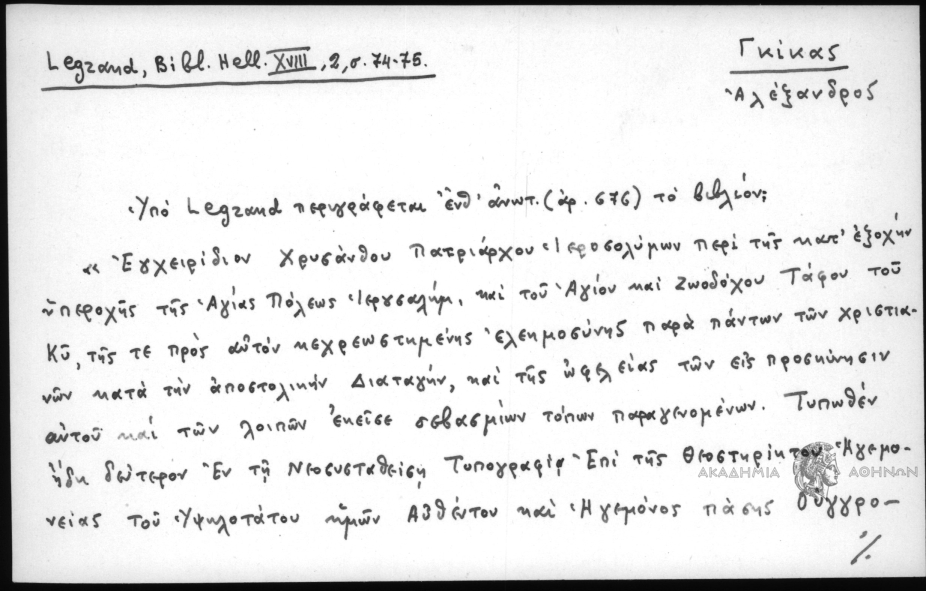 Legrand, Bibl. Hell. XVIII, 2, σ. 74-75.
Γκίκας
Ἀλέξανδρος
Ὑπό Legrand περιγράφεται ἔνθ' ἀνωτ. (ἀρ. 676) τὸ βιβλίον:
« Ἐγχειρίδιον Χρυσάνθου Πατριάρχου Ἱεροσολύμων περὶ τῆς κατ' ἐξοχὴν
ὑπεροχῆς τῆς Ἁγίας Πόλεως Ἱερουσαλήμ, καὶ τοῦ Ἁγίου καὶ Ζωοδόχου Τάφου τοῦ
Κῦ, τῆς τε πρὸς αὐτὸν κεχρεωστημένης ἐλεημοσύνης παρὰ πάντων τῶν χριστια-
νῶν κατὰ τὴν ἀποστολικὴν Διαταγήν, καὶ τῆς ὠφελείας τῶν εἰς προσκύνησιν
αὐτοῦ καὶ τῶν λοιπῶν ἐκεῖσε σεβασμίων τόπων παραγενομένων. Τυπωθὲν
ἤδη δεύτερον Ἐν τῇ Νεοσυσταθείσῃ Τυπογραφίᾳ Ἐπὶ τῆς Θεοστηρίκτου Ἡγεμο-
νείας τοῦ Ὑψηλοτάτου ἡμῶν Αὐθέντου καὶ Ἡγεμόνος πάσης Οὐγγρο-
./.
ΑΚΑΔΗΜΙΑ ΑΘΗΝΩΝ